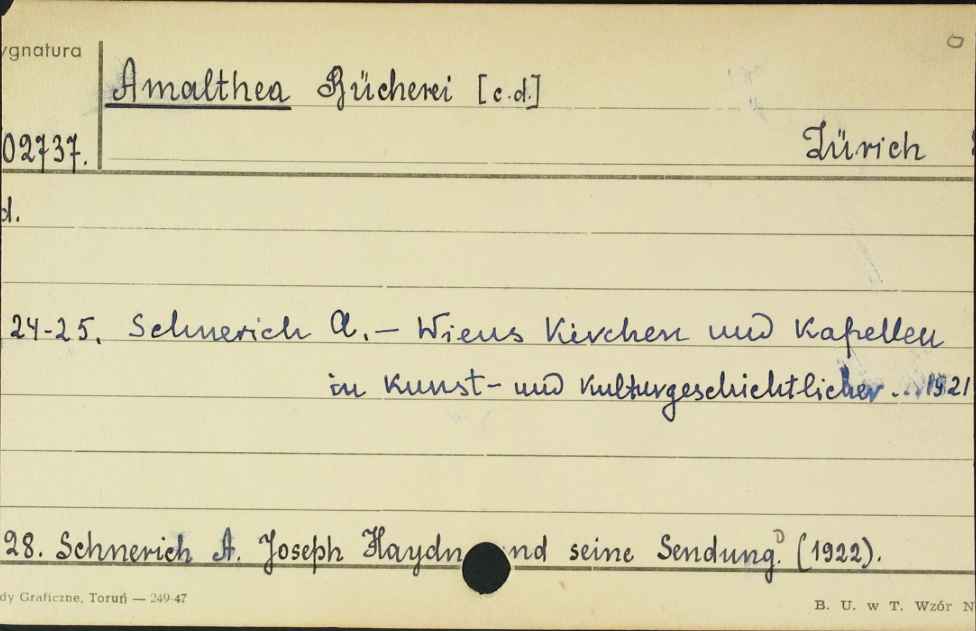 ygnatura
Amalthea Bücherei [c.d.]
02737.
Zürich
d.
24-25. Schnerich A. — Wiens Kirchen und Kapellen
in Kunst- und Kulturgeschichtlicher ... 1921
28. Schnerich A. Joseph Haydn nd seine Sendung. (1922).
dy Graficzne, Toruń — 249-47
B. U. w T. Wzór N